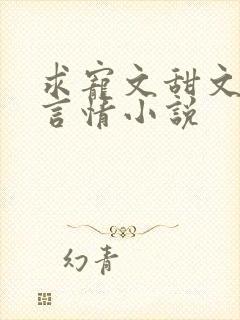 求寵文甜文
言情小說
幻青